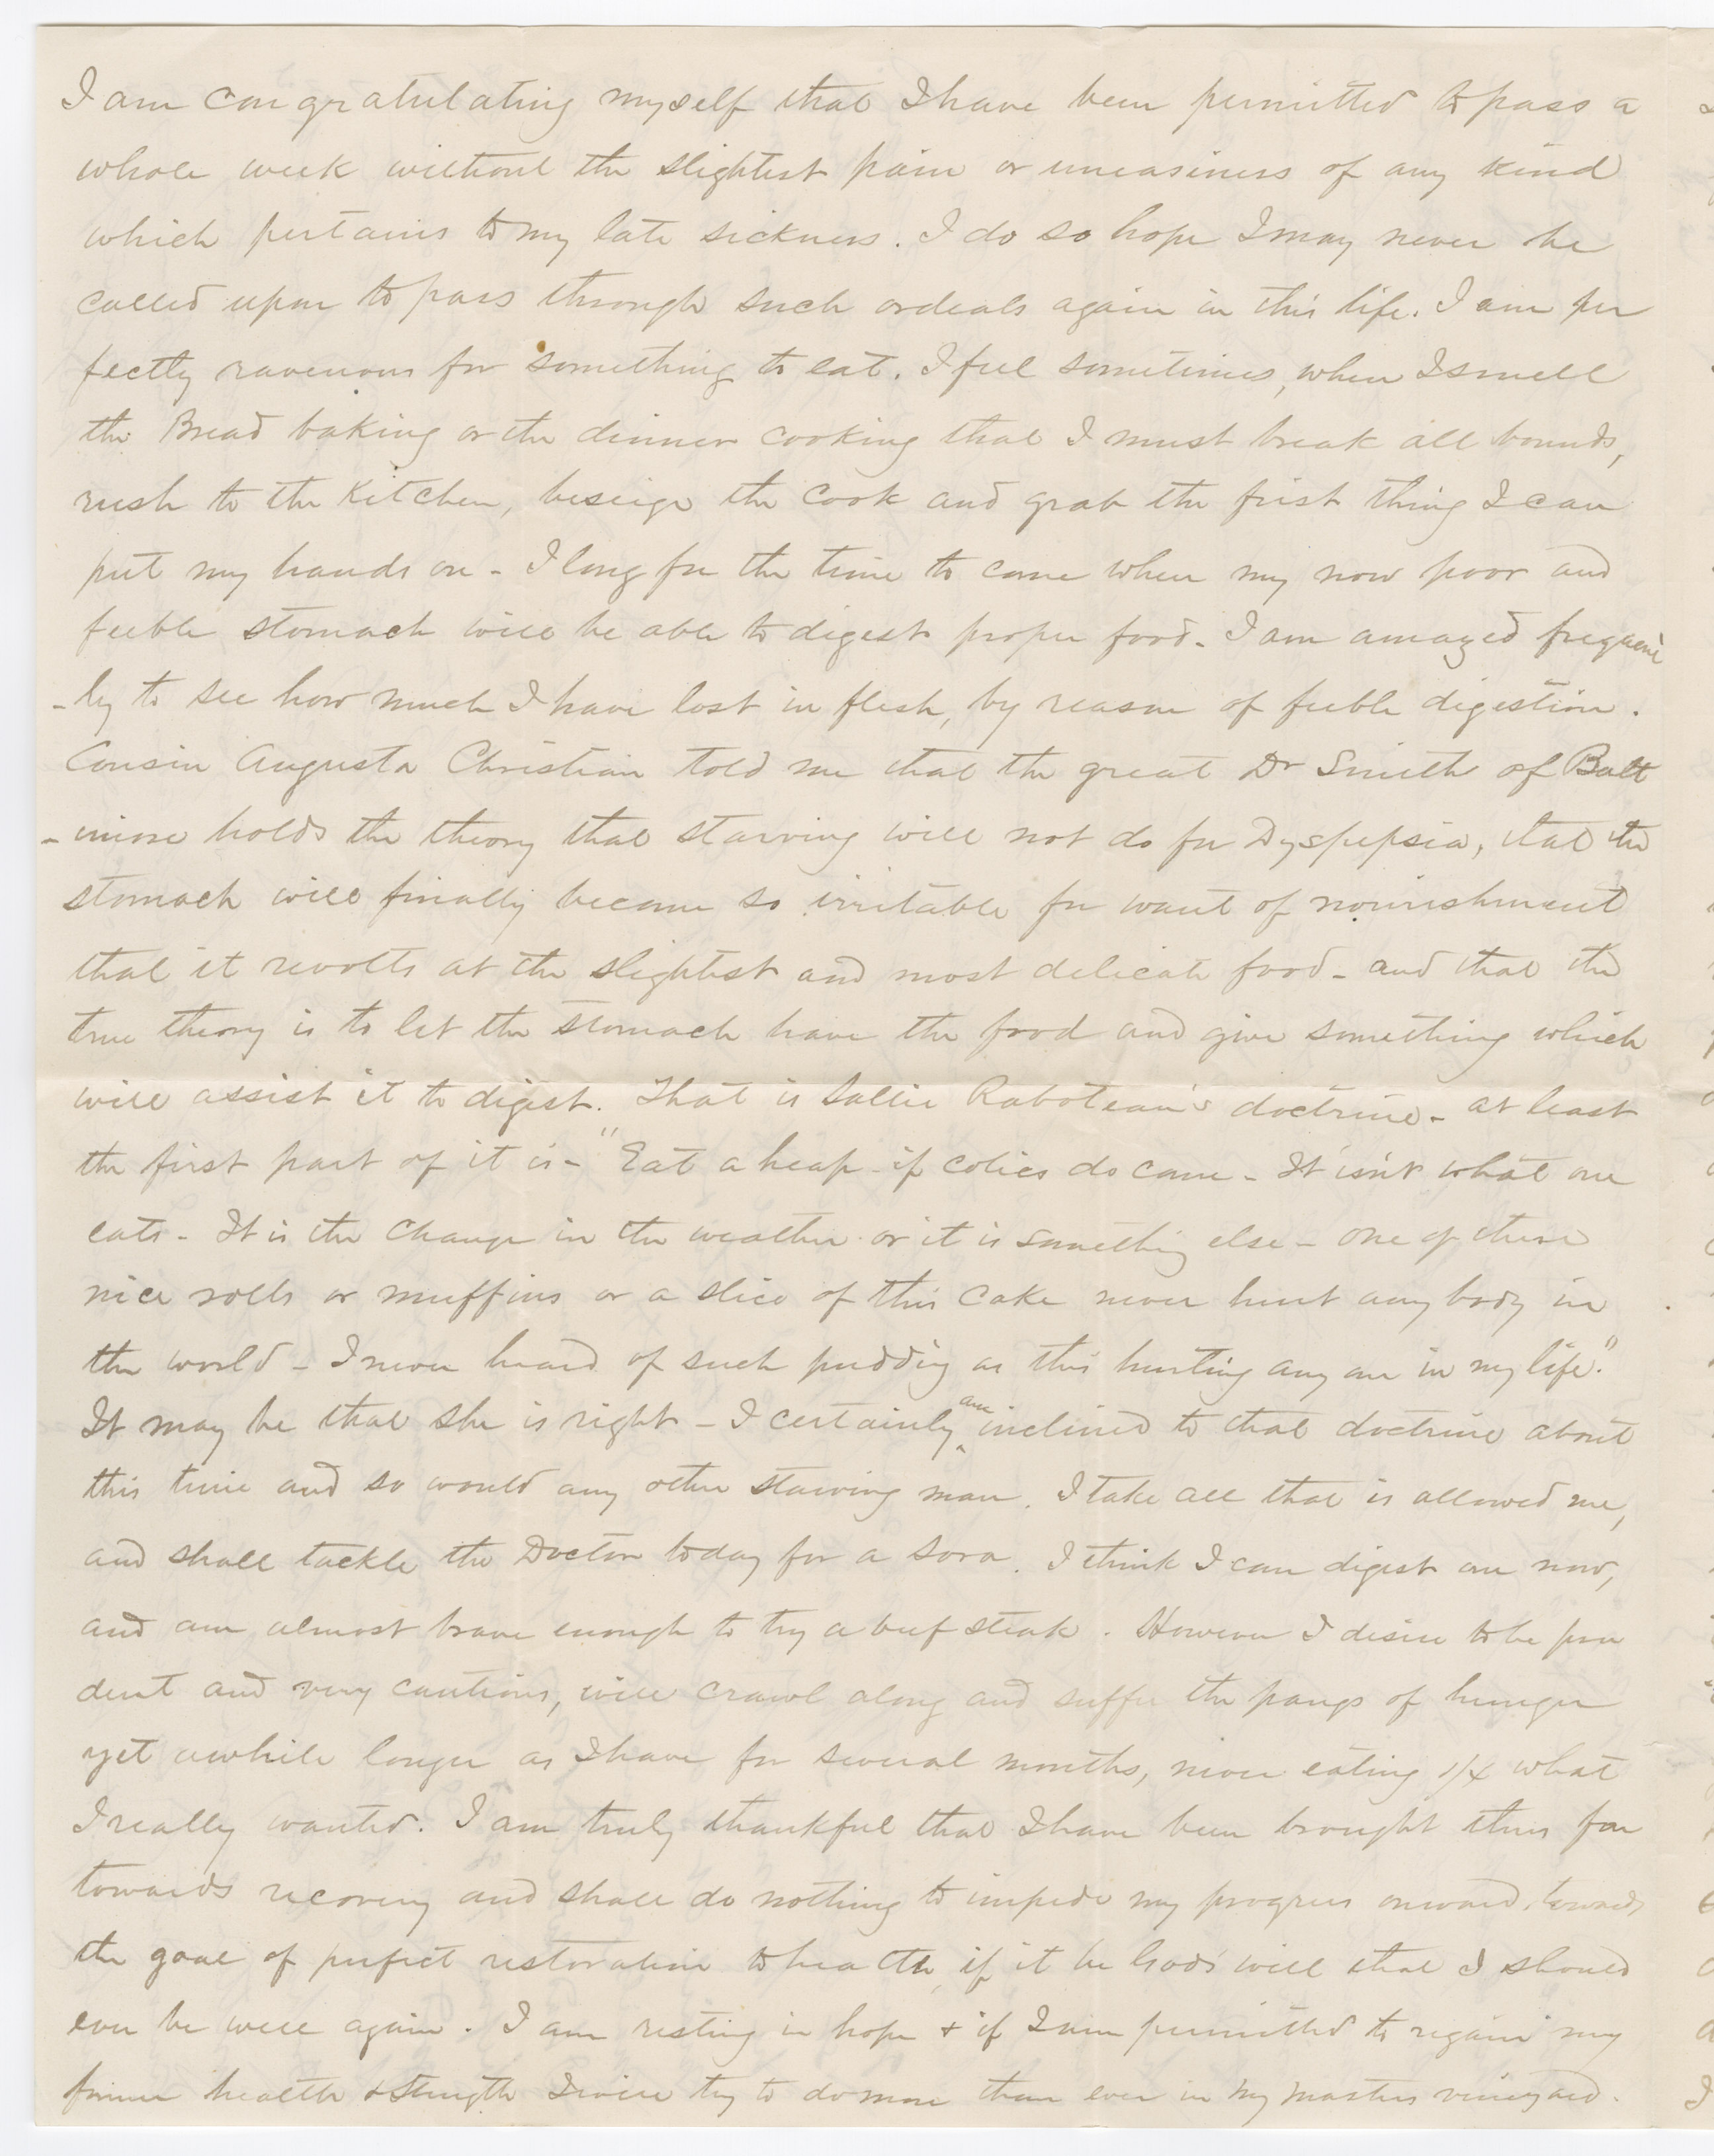 I am congratulating myself that I have been permitted to pass a
whole week without the slightest pain or uneasiness of any kind
which pertains to my late sickness. I do so hope I may never be
called upon to pass through such ordeals again in this life. I am per
fectly ravenous for something to eat. I feel sometimes, when I smell
the Bread baking or the dinner cooking that I must break all bounds,
rush to the Kitchen, beseige the cook and grab the first thing I can
put my hands on - I long for the time to come when my now poor and
feeble stomach will be able to digest proper food - I am amazed frequent
-ly to see how much I have lost in flesh, by reason of feeble digestion.
Cousin Augusta Christian told me that the great Dr Smith of Balt
-imore holds the theory that starving will not do for Dyspepsia, that the
stomach will finally become so irritable for want of nourishment
that it revolts at the slightest and most delicate food - and that the
true theory is to let the stomach have the food and give something which
will assist it to digest. That is Sallie Raboteau's doctrine - at least
the first part of it is - "Eat a heap - if colics do come - It isn't what one
eats - It is the change in the weather or it is something else - one of these
nice rolls or muffins or a slice of this cake never hurt any body in
the world - I never heard of such pudding as this hurting any one in my life."
It may be that she is right - I certainly am inclined to that doctrine about
this time and so would any other starving man. I take all that is allowed me,
and shall tackle the Doctor today for a sora. I think I can digest one now,
and am almost brave enough to try a beef steak. However I desire to be pru
dent and very cautious, will crawl along and suffer the pangs of hunger
yet awhile longer as I have for several months, never eating 1/4 what
I really wanted. I am truly thankful that I have been brought thus far
towards recovery and shall do nothing to impede my progress onward towards
the goal of perfect restoration to health, if it be God's will that I should
ever be well again. I am resting in hope & if I am permitted to regain my
former health & strength I will try to do more than ever in my masters vineyard.